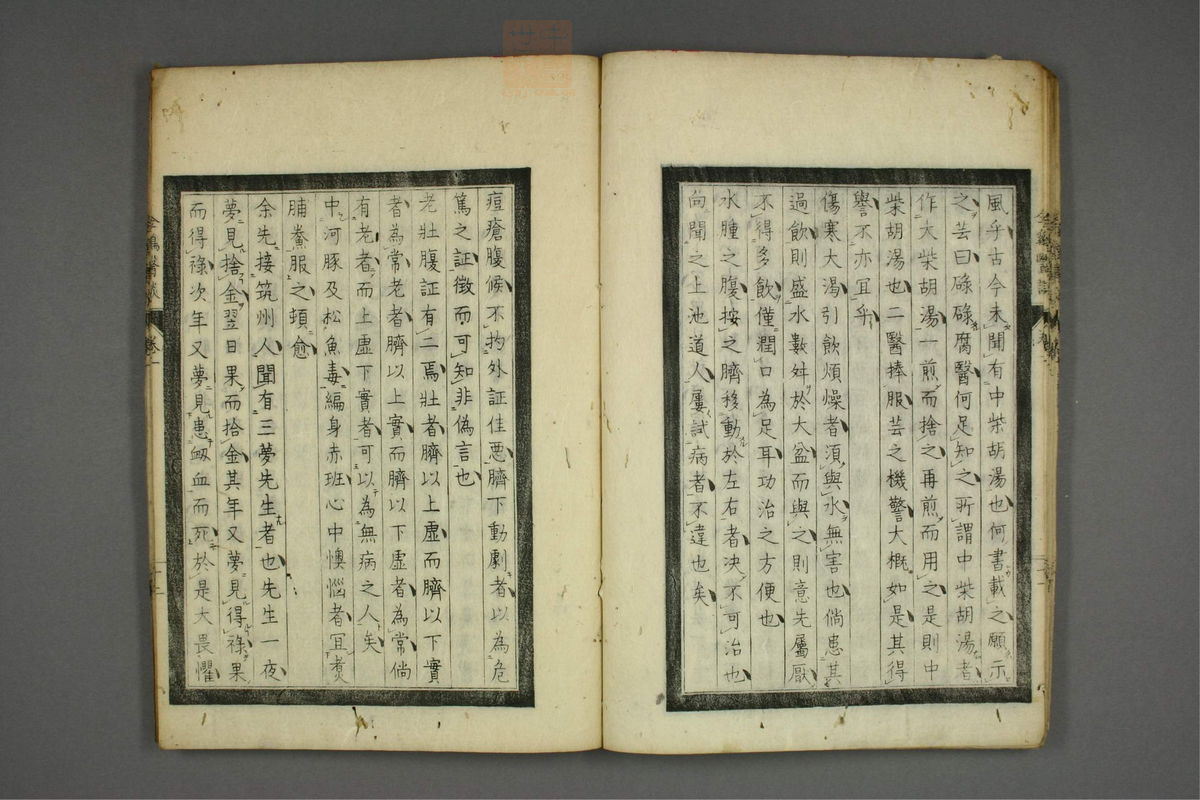 風乎古今未聞有中柴胡湯也何書載之願示
之芸曰碌碌腐醫何足知之所謂中柴胡湯者
作大柴胡湯一煎而捨之再煎而用之是則中
柴胡湯也二醫捧服芸之機警大概如是其得
譽不亦宜乎
傷寒大渴引飲煩燥者須與水無害也倘患其
過飲則盛水數舛於大盆而與之則意先屬厭
不得多飲僅潤口為足耳功治之方便也
水腫之腹按之臍移動於左右者决不可治也
向聞之上池道人屢試病者不違也矣
痘瘡腹候不拘外証佳悪臍下動劇者以為危
篤之証徴而可知非偽言也
老壯腹証有二焉壯者臍以上虛而臍以下實
者為常老者臍以上實而臍以下虛者為常倘
有老者而上虛下實者可以為無病之人矣
中河豚及松魚毒編身赤班心中懊惱者冝煑
脯鮝服之頓愈
余先接筑州人聞有三夢先生者也先生一夜
夢見捨金翌日果而拾金其年又夢見得祿果
而得祿次年又夢見患衂血而死於是大畏懼